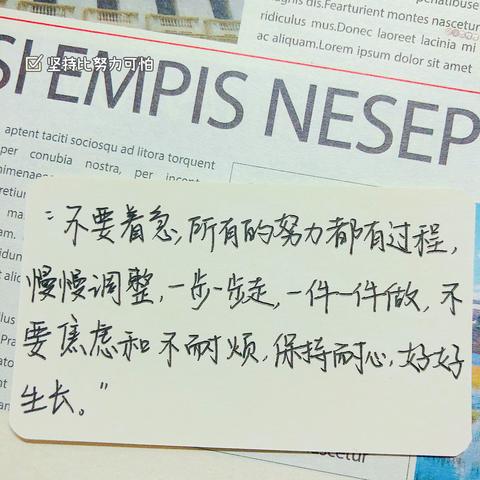 penatibus
dis.Fearturient montes nascetur
ridiculus mus.Donec laoreet lacinia mi
ac aliquam.Lorem ipsum dolor sit amet
坚持比努力可怕
EMPIS NESEP
aptent taciti sociosqu ad litora torquent
per conubia nostra, per
"不要着急,所有的努力都有过程,
慢慢调整,一步一步走,一件一件做,不
要焦虑和不耐烦,保持耐心,好好
生长。"